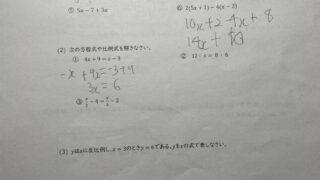 ⑤ 5x − 7 + 3x
⑥ 2(5x + 1) − 4(x − 2)
10x + 2 - 4x + 8
14x + 10
(2) 次の方程式や比例式を解きなさい。
① 4x + 9 = x − 3
② 12 : x = 8 : 6
-x + 4x = -3 + 9
3x = 6
③ x/2 − 4 = x/3 − 2
(3) yはxに反比例し、x = 3のときy = 6である。yをxの式で表しなさい。